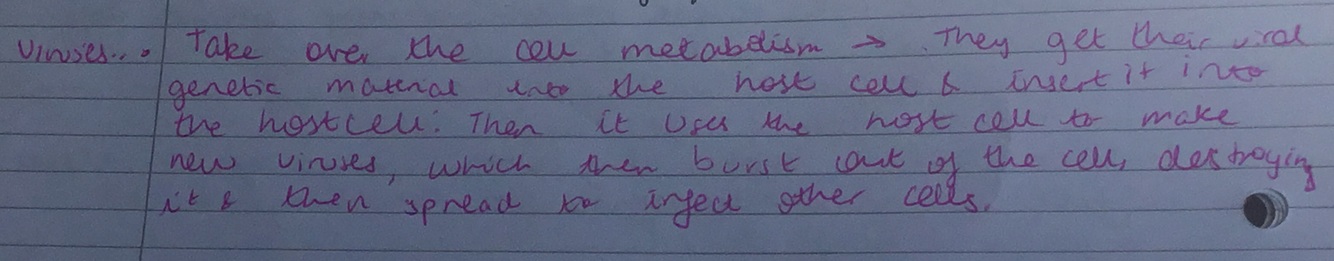 Viruses... Take over the cell metabolism → They get their viral
genetic material into the host cell & insert it into
the host cell. Then it uses the host cell to make
new viruses, which then burst out of the cell, destroying
it & then spread to infect other cells.